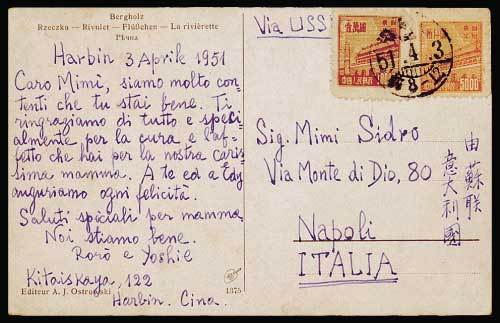 Bergholz
Rzeczka — Rivulet — Flüßchen — La rivièrette
Via USS
Harbin 3 Aprile 1951
Caro Mimì, siamo molto con=
tenti che tu stai bene. Ti
ringraziamo di tutto e speci=
almente per la cura e l'af=
fetto che hai per la nostra caris
sima mamma. A te ed a Edy
auguriamo ogni felicità.
Saluti speciali per mamma
Noi stiamo bene.
Rorò e Yoshie
Kitaiskaya, 122
Harbin. Cina.
Editeur A. J. Ostrowski
1375
51. 4. 3
8
5000
Sig. Mimì Sidro
Via Monte di Dio, 80
Napoli
ITALIA
由蘇联
意大利國